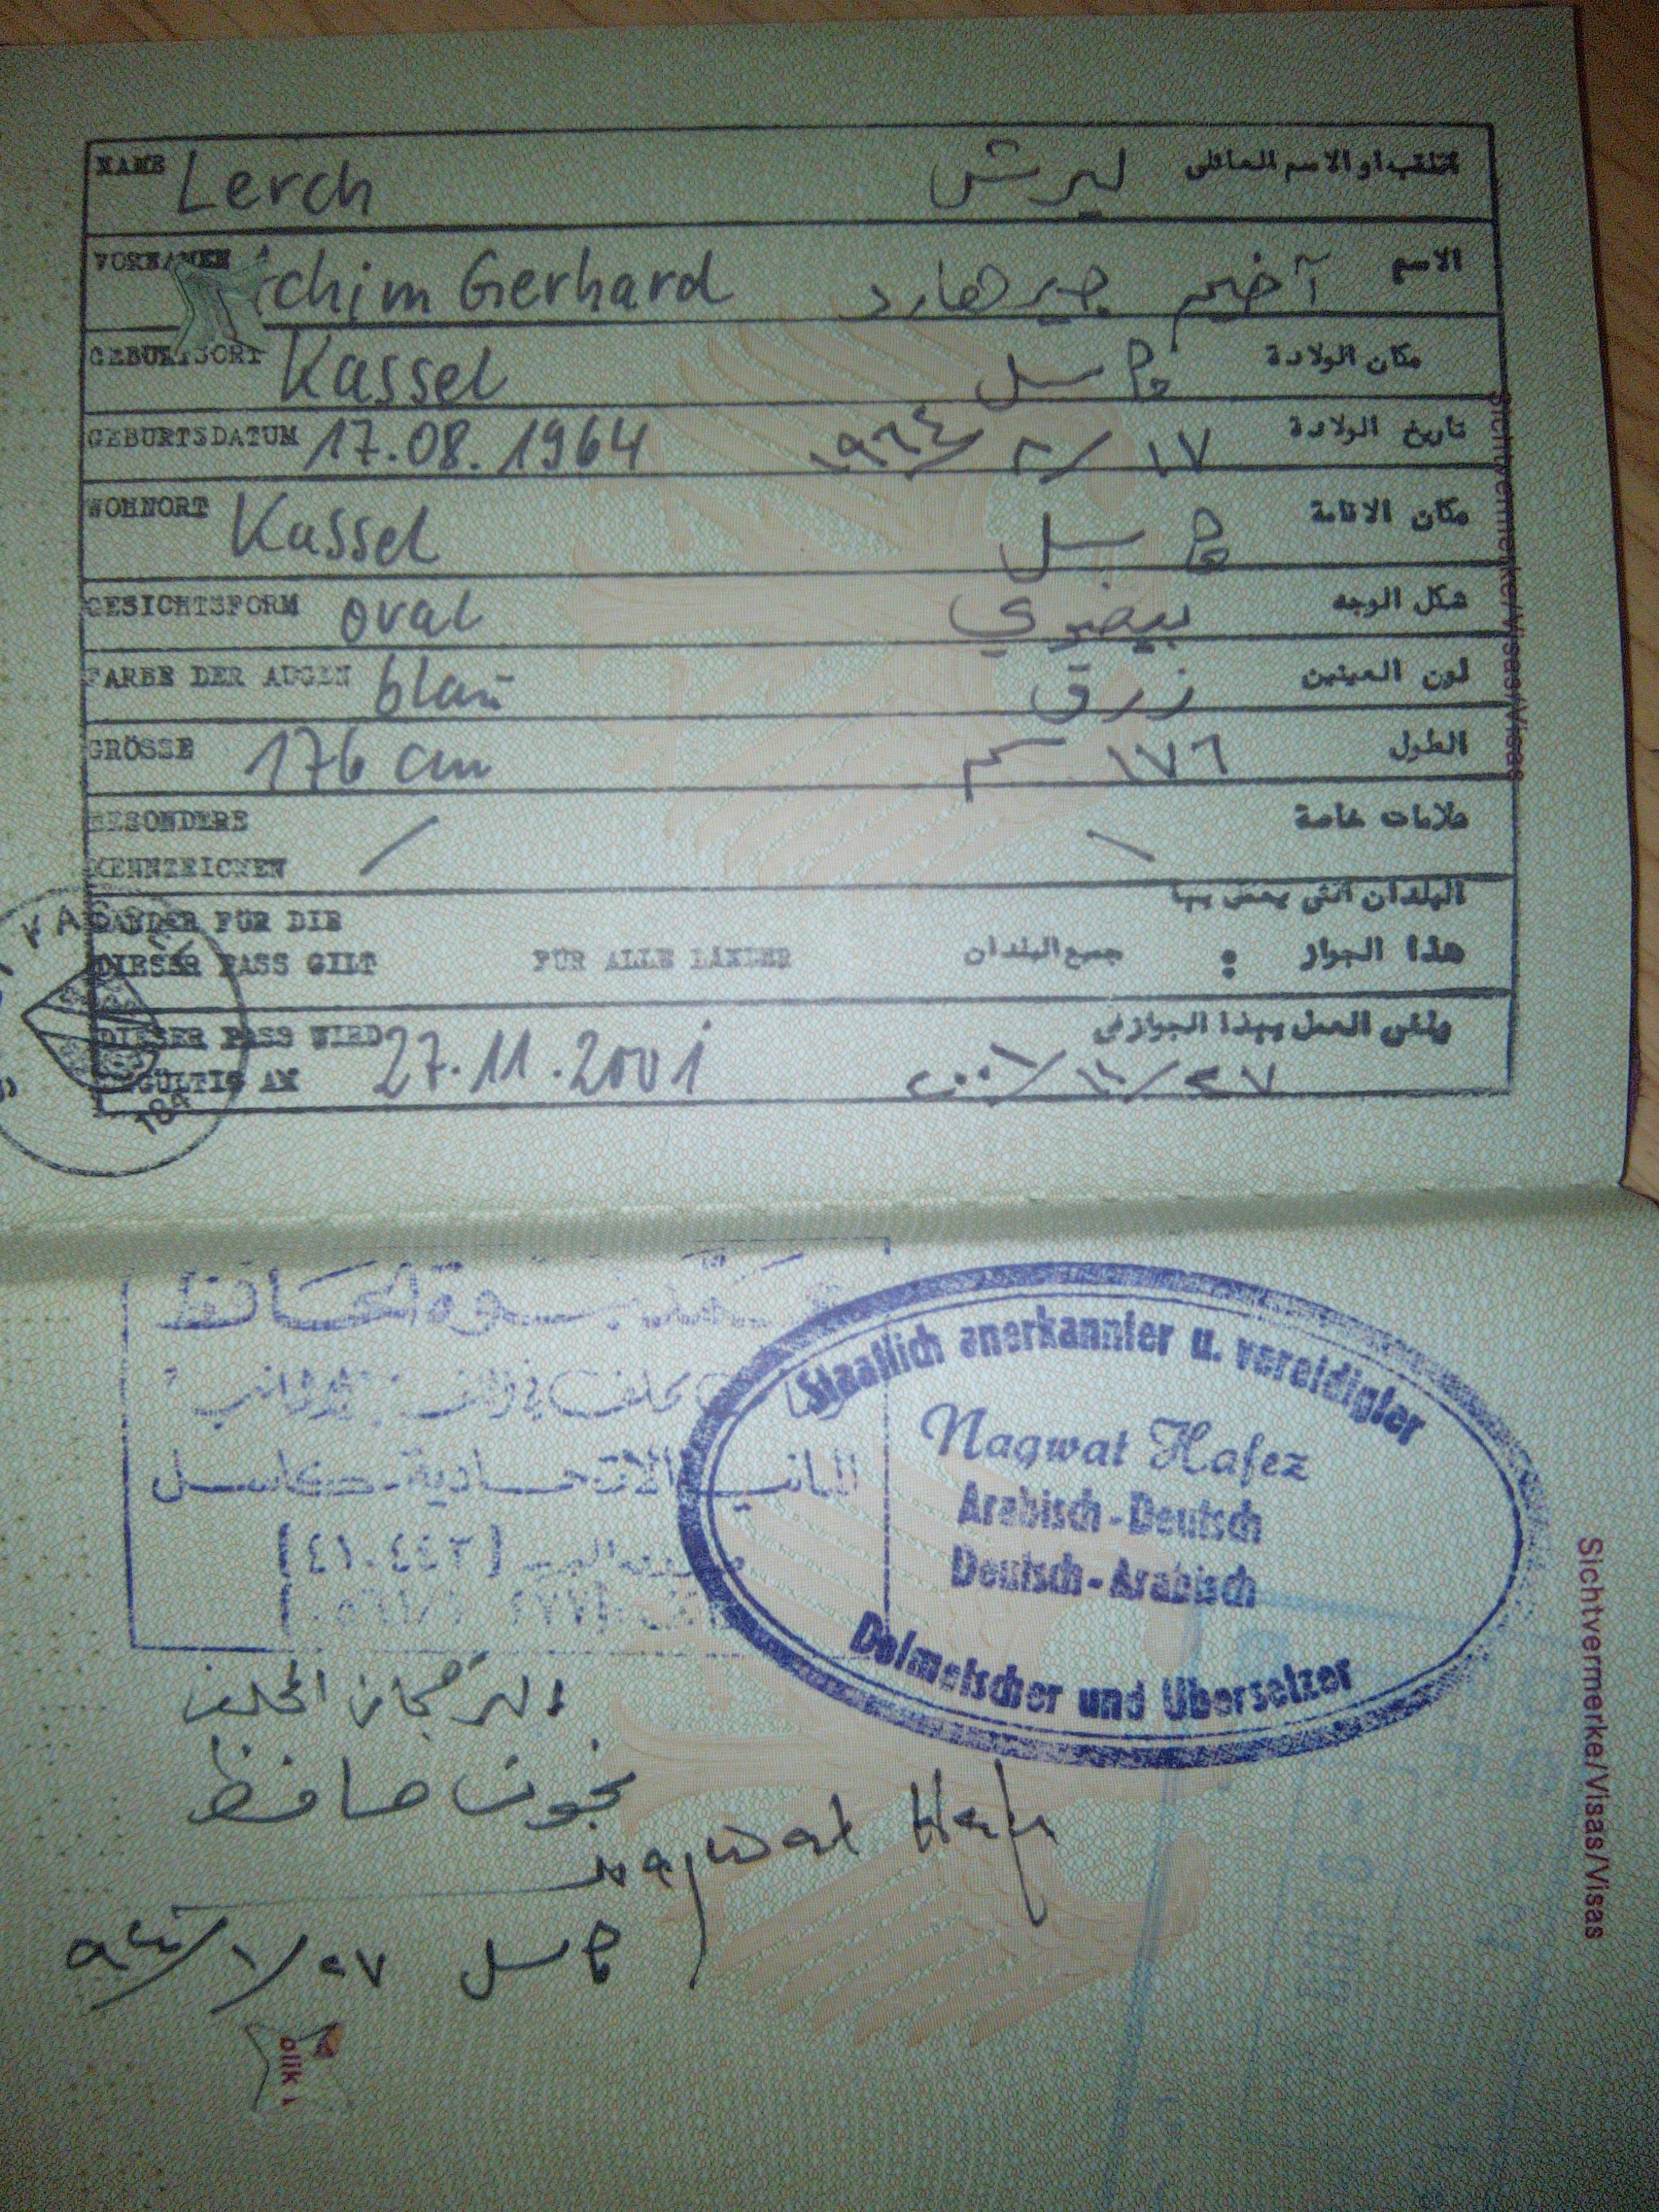 NAME Lerch ليرتش اللقب او الاسم العائلى
VORNAMEN chim Gerhard آخيم جيرهارد الاسم
GEBURTSORT Kassel كاسل مكان الولادة
GEBURTSDATUM 17.08.1964 ١٧/٨/١٩٦٤ تاريخ الولادة
WOHNORT Kassel كاسل مكان الاقامة
GESICHTSFORM oval بيضوي شكل الوجه
FARBE DER AUGEN blau زرق لون العينين
GRÖSSE 176 cm ١٧٦ سم الطول
BESONDERE علامات خاصة
KENNZEICHEN / \
LÄNDER FÜR DIE البلدان التى يعمل بها
DIESER PASS GILT FÜR ALLE LÄNDER جميع البلدان : هذا الجواز
DIESER PASS WIRD 27.11.2001 ٢٧/١١/٢٠٠١ العمل بهذا الجواز فى
GÜLTIG AM
184
Sichtvermerke/Visas/Visas
الحافظ
محلف في
الاتحادية - كاسل
Staatlich anerkannter u. vereidigter
Nagwat Hafez
Arabisch - Deutsch
Deutsch - Arabisch
Dolmetscher und Übersetzer
الترجمان المحلف
نجوت حافظ
Nagwat Hafez
كاسل ٢٧/١/
blik
Sichtvermerke/Visas/Visas